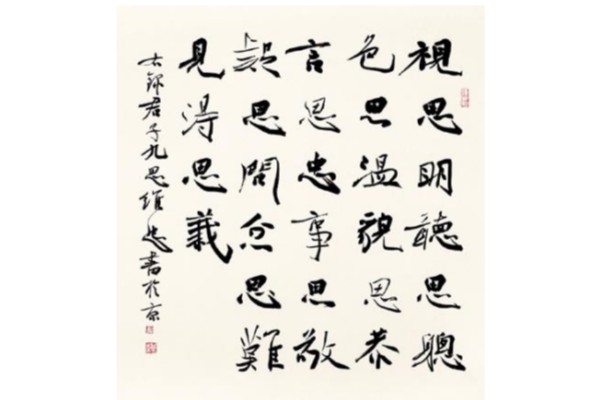 視思明聽思聰
色思溫貌思恭
言思忠事思敬
疑思問忿思難
見得思義
右錄君子九思維忠書於京